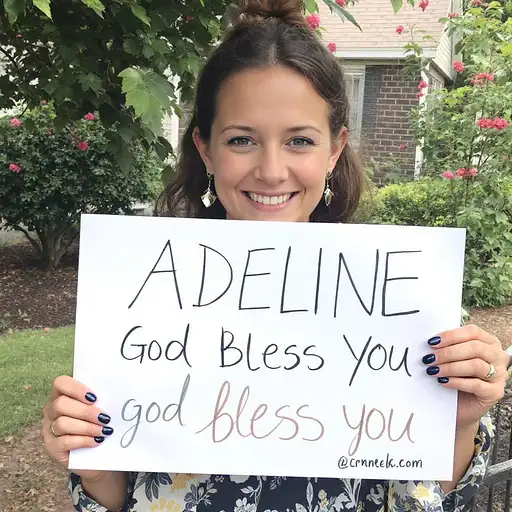 ADELINE
God Bless You
god bless you
@crnneelk.com